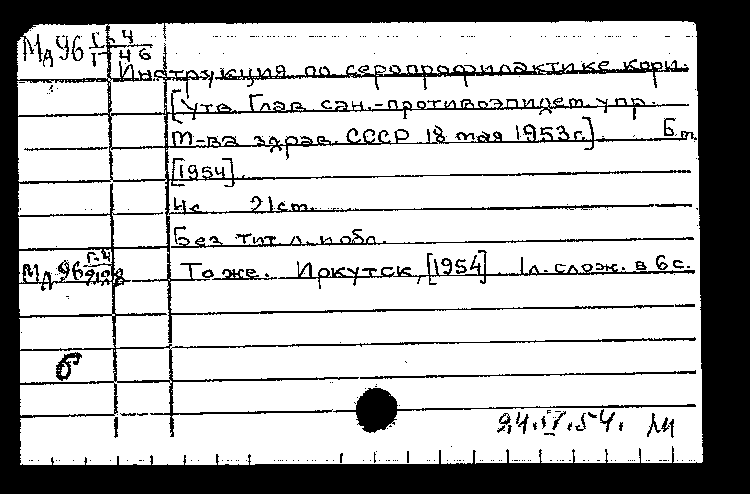 МА96 Г-4
17 46
Инструкция по серопрофилактике кори.
[Утв. Глав. сан.-противоэпидем. упр.
М-ва здрав. СССР 18 мая 1953 г.]. Б.м.
[1954].
4с. 21 cm.
Без тит. л. и обл.
МА96 Г-4 То же. Иркутск, [1954]. 1 л. слож. в 6 с.
б
24. .54.